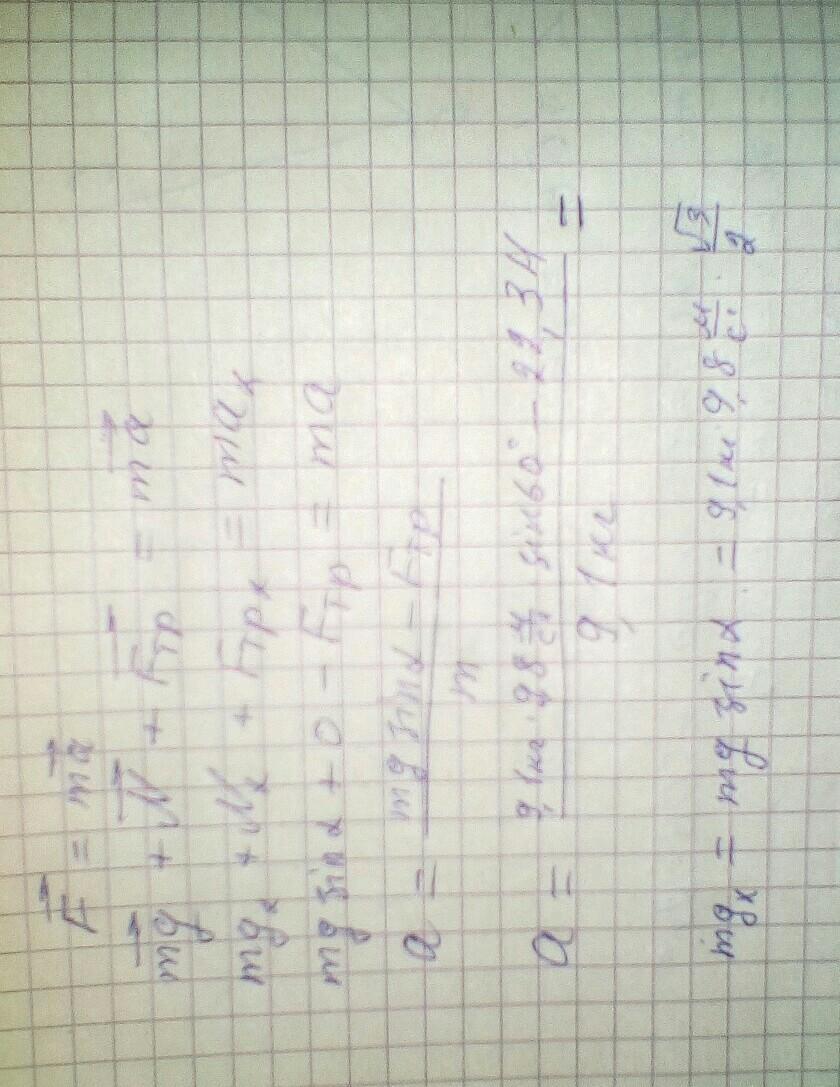 F⃗ = ma⃗
mg⃗ + N⃗ + F⃗тр = ma⃗
mgx + Nx + Fтрx = max
mg sinα + 0 − Fтр = ma
a = (mg sinα − Fтр) / m
a = (9,1кг · 9,8 м/с² sin60° − 22,3Н) / 9,1кг =
mgx = mg sinα = 9,1кг · 9,8 м/с² · √3/2